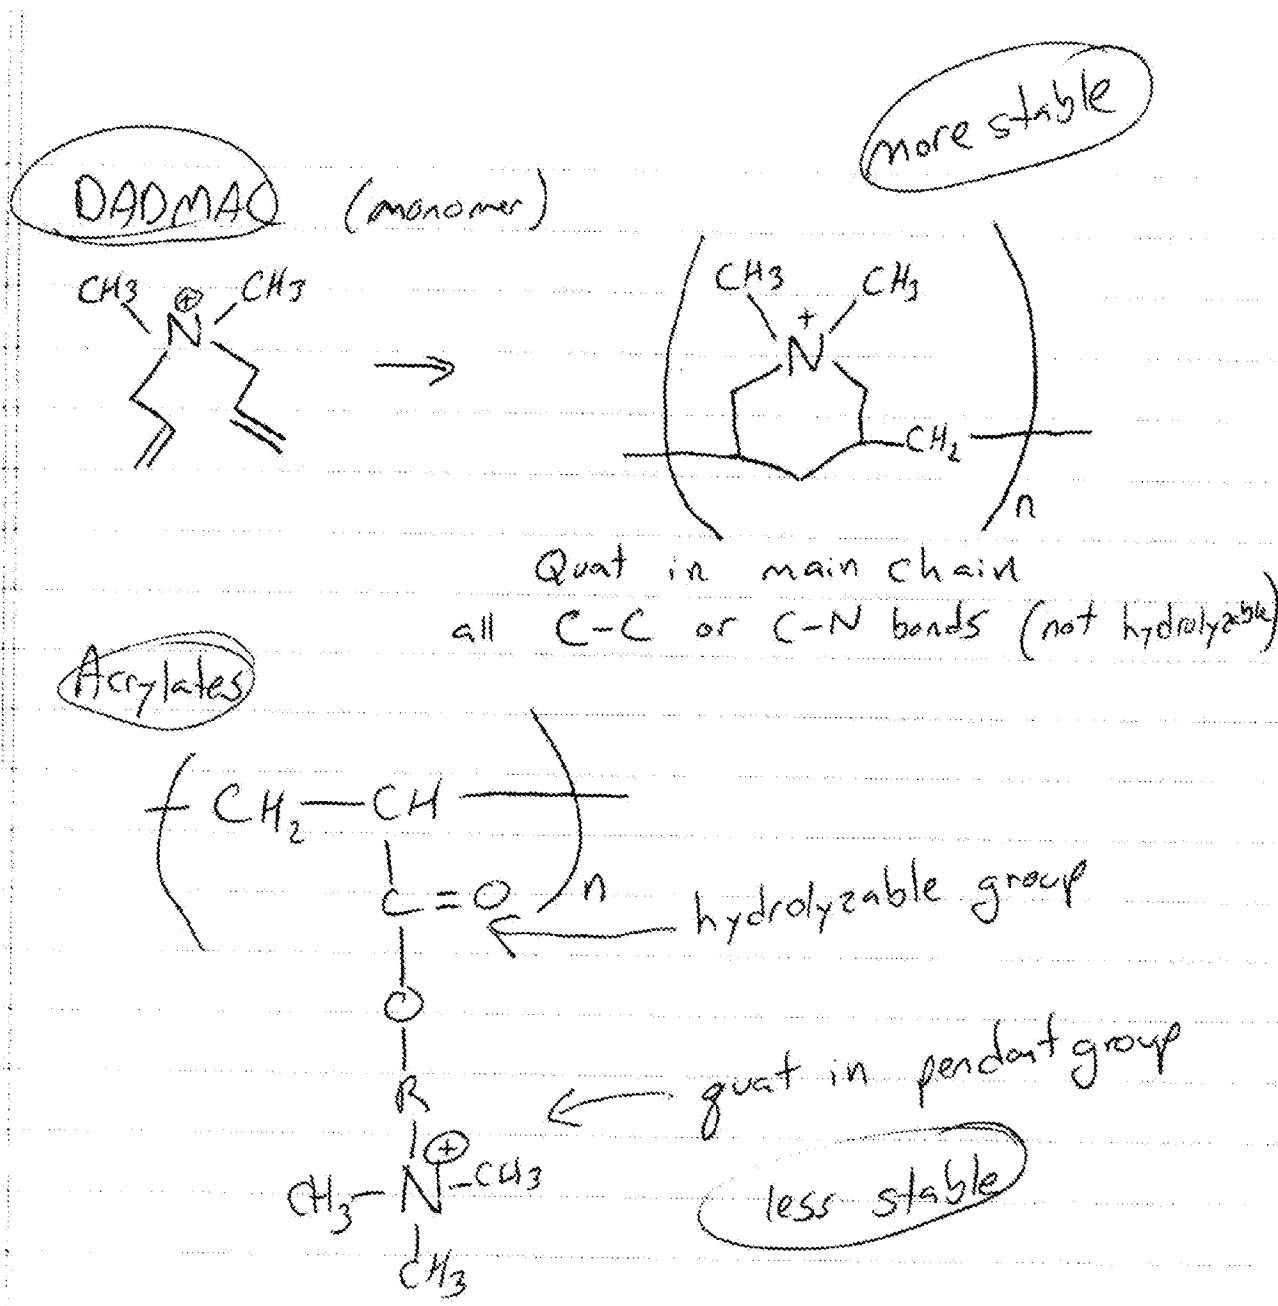 more stable
DADMAC (monomer)
CH3 ⊕ CH3
N
→
CH3 + CH3
N
CH2
n
Quat in main chain
all C-C or C-N bonds (not hydrolyzable)
Acrylates
CH2—CH
n
C=O ← hydrolyzable group
O
R ← quat in pendant group
⊕
CH3-N-CH3
CH3
less stable